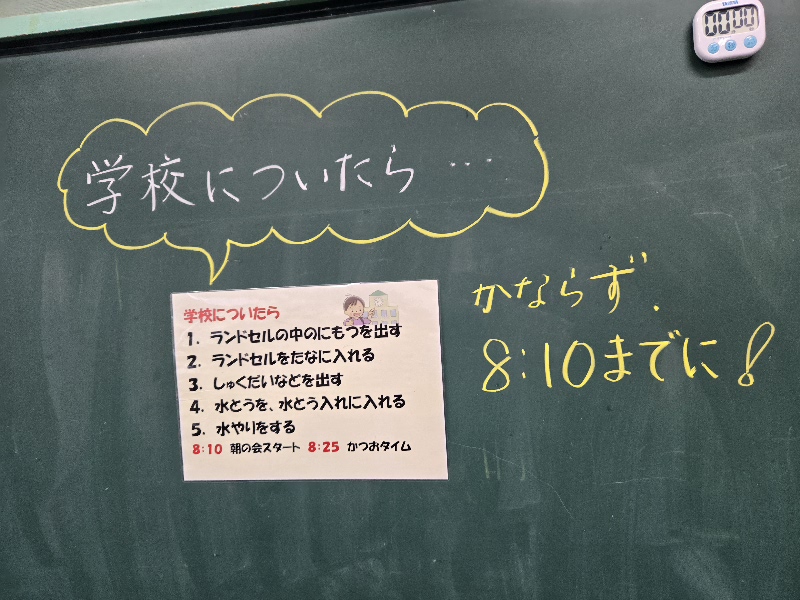 学校についたら…
学校についたら
1. ランドセルの中のにもつを出す
2. ランドセルをたなに入れる
3. しゅくだいなどを出す
4. 水とうを、水とう入れに入れる
5. 水やりをする
8:10 朝の会スタート 8:25 かつおタイム
かならず、
8:10までに!
00:00